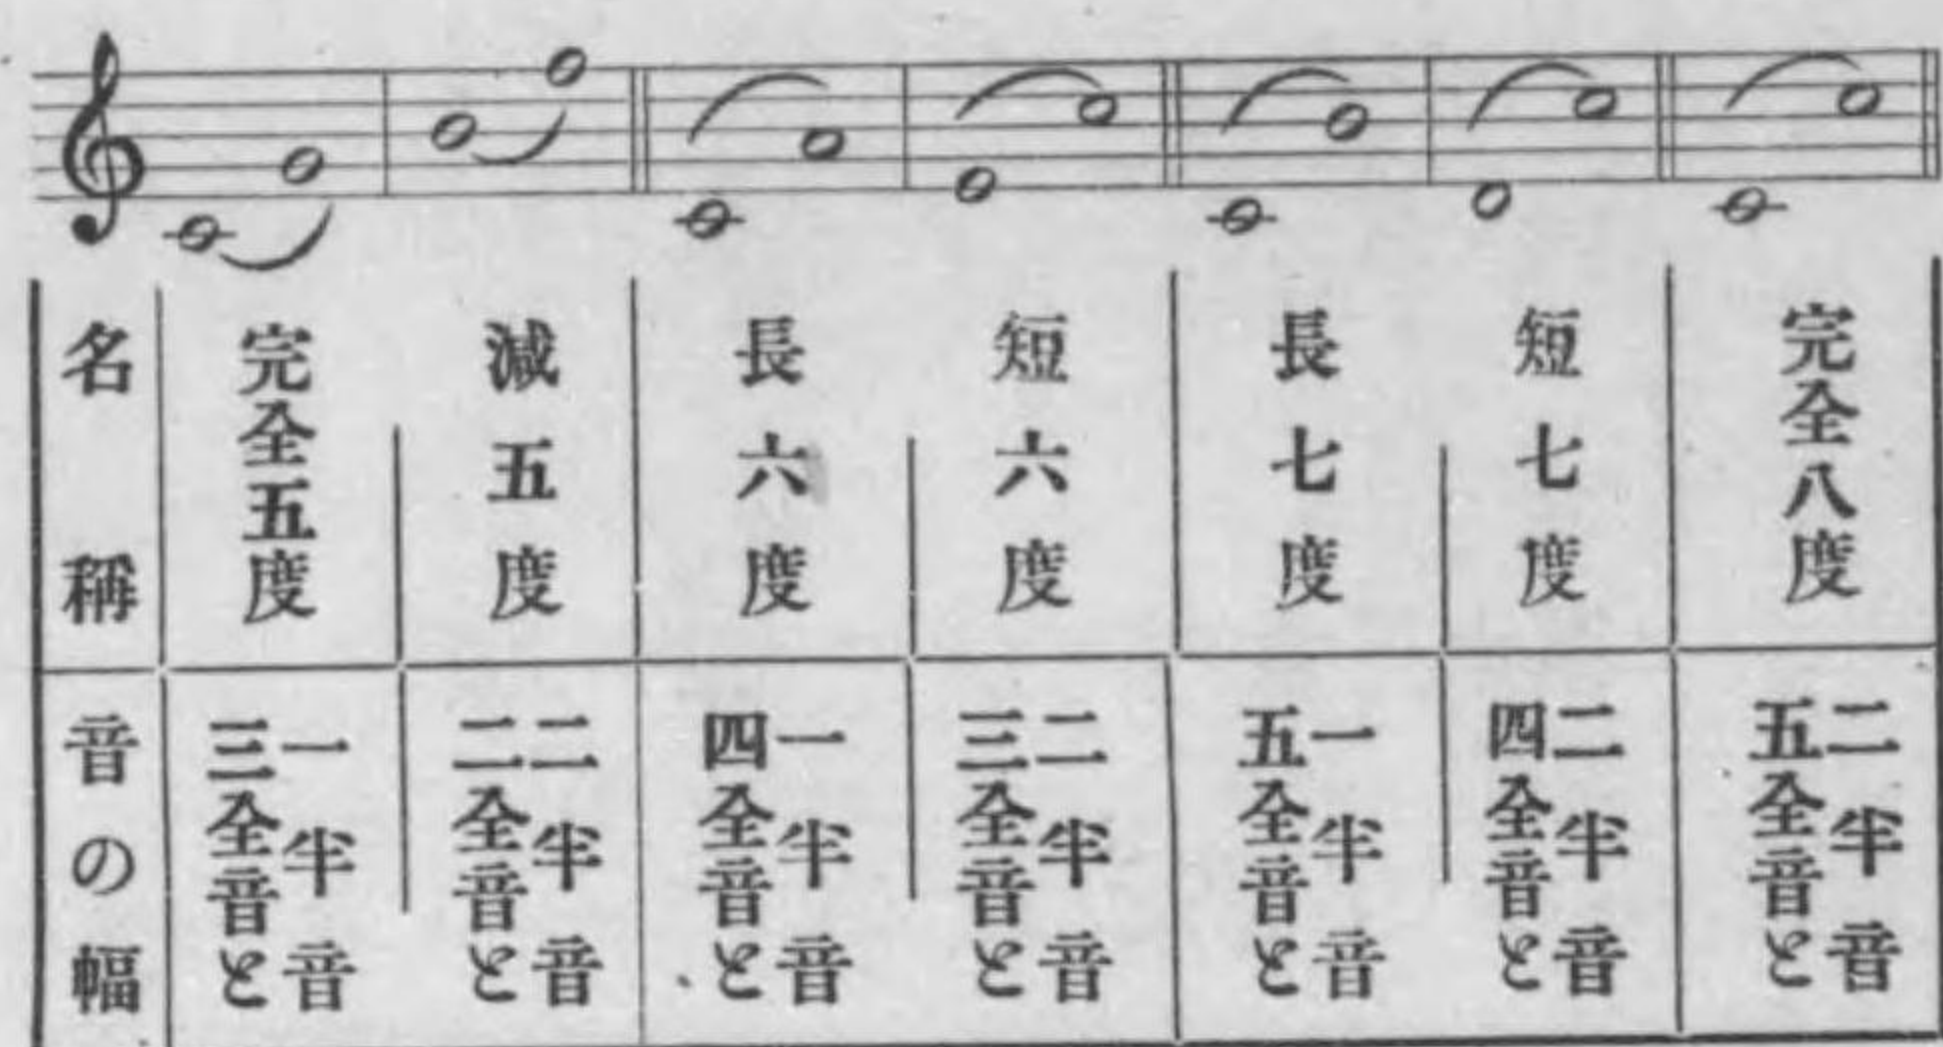 名稱
完全五度
減五度
長六度
短六度
長七度
短七度
完全八度
音の幅
三全音と
一半音
二全音と
二半音
四全音と
一半音
三全音と
二半音
五全音と
一半音
四全音と
二半音
五全音と
二半音